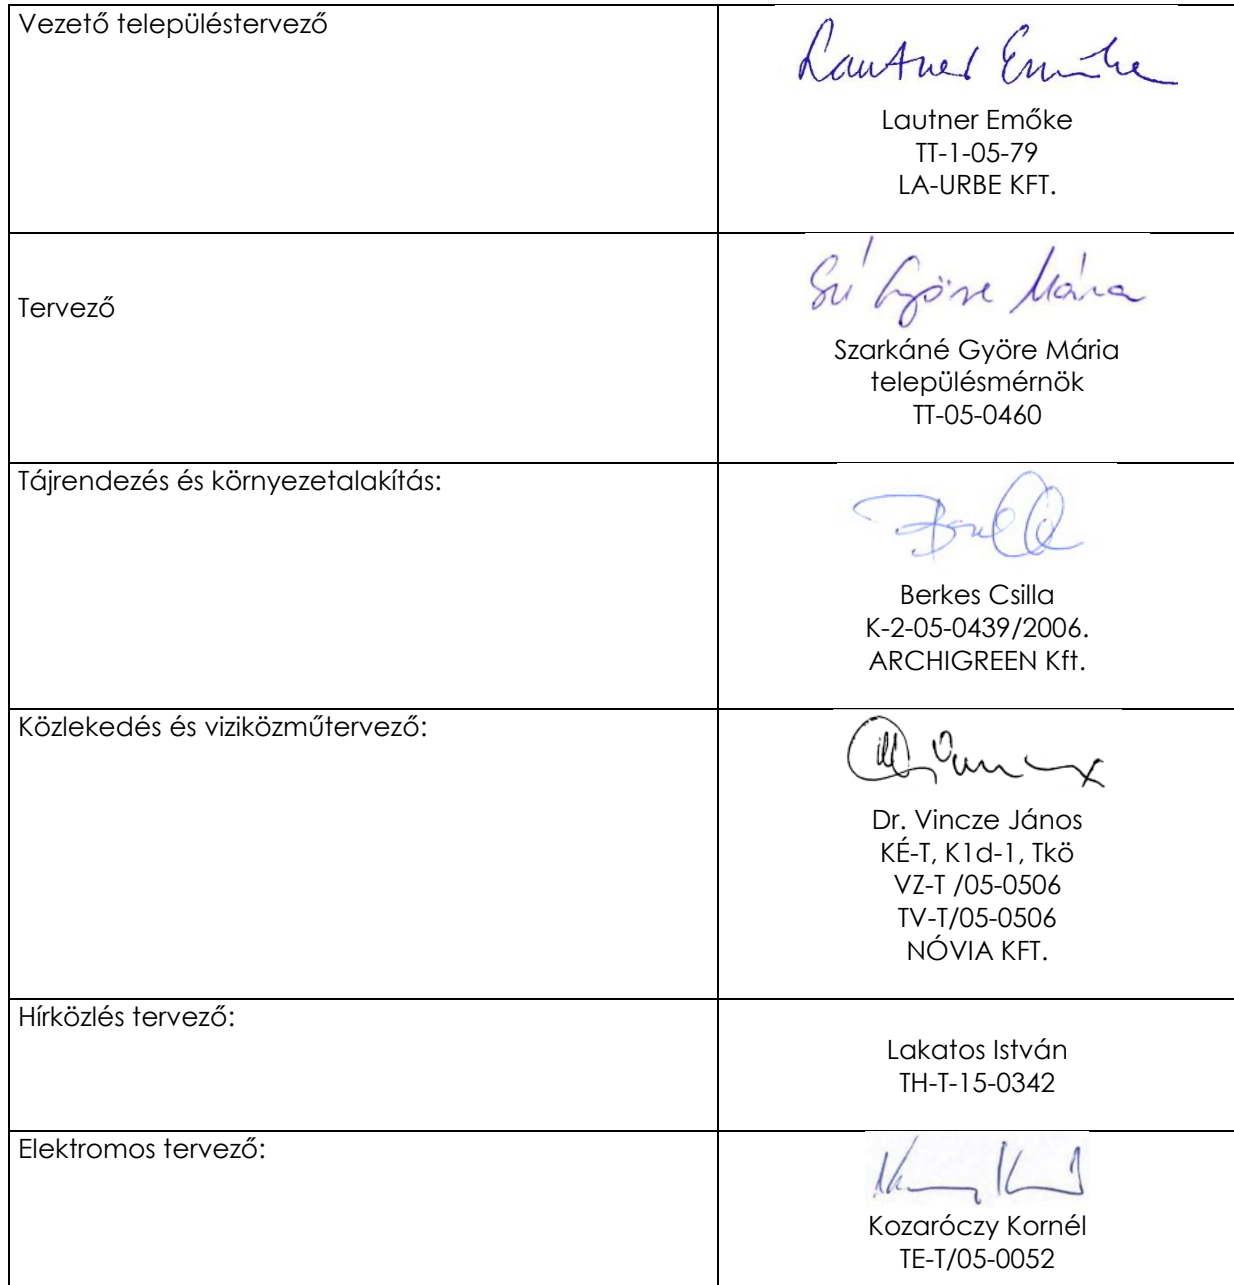 Vezető településtervező
Lautner Emőke
Lautner Emőke
TT-1-05-79
LA-URBE KFT.
Tervező
Szné Györe Mária
Szarkáné Györe Mária
településmérnök
TT-05-0460
Tájrendezés és környezetalakítás:
Berkes Csilla
K-2-05-0439/2006.
ARCHIGREEN Kft.
Közlekedés és viziközműtervező:
Dr. Vincze János
KÉ-T, K1d-1, Tkö
VZ-T /05-0506
TV-T/05-0506
NÓVIA KFT.
Hírközlés tervező:
Lakatos István
TH-T-15-0342
Elektromos tervező:
Kozaróczy Kornél
TE-T/05-0052